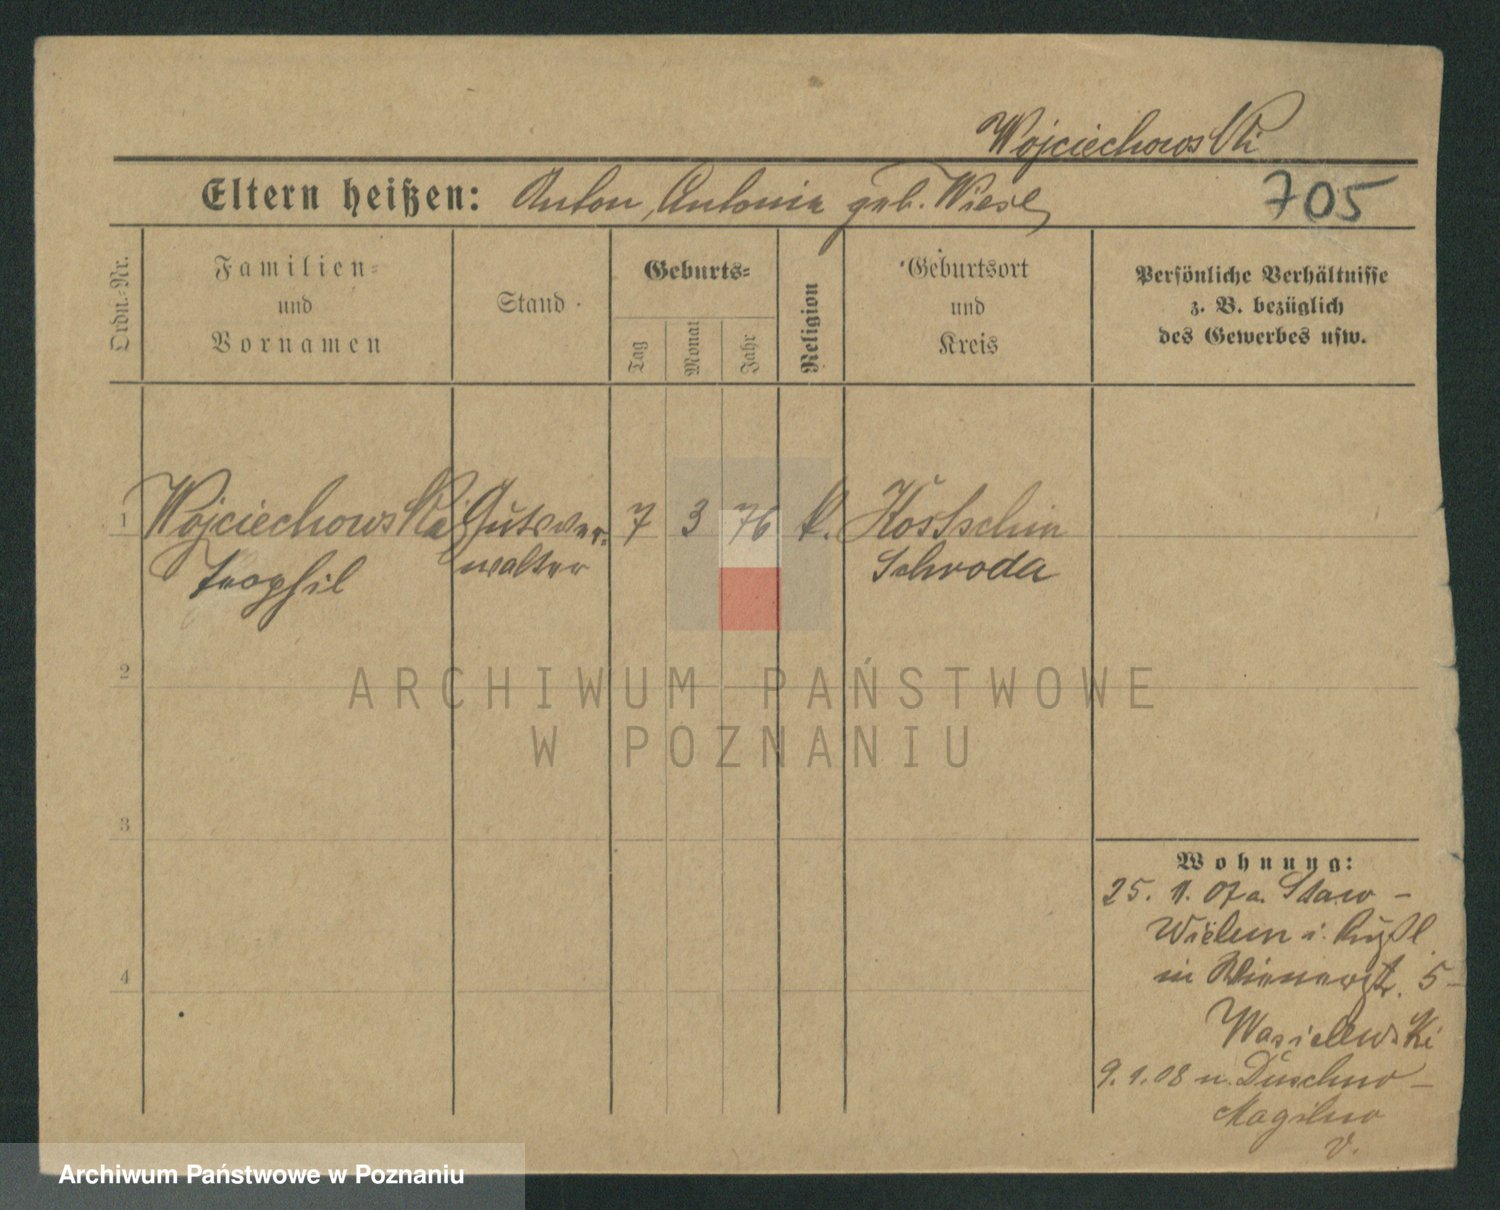 Wojciechowski
Eltern heißen: Anton, Antonia geb. Wiese
705
Ordn.-Nr.
Familien-
und
Vornamen
Stand
Geburts-
Tag
Monat
Jahr
Religion
Geburtsort
und
Kreis
Persönliche Verhältnisse
z. B. bezüglich
des Gewerbes usw.
1 Wojciechowski Gutsver- 7 3 76 k. Kostschin
Teophil walter Schroda
2
3
4
Wohnung:
25. 11. 07 a. Staw -
Wielun i. Rußl.
in Wienerstr. 5 -
Wasielewski
9. 1. 08 n. Duschno -
Mogilno
V.
ARCHIWUM PAŃSTWOWE
W POZNANIU
Archiwum Państwowe w Poznaniu